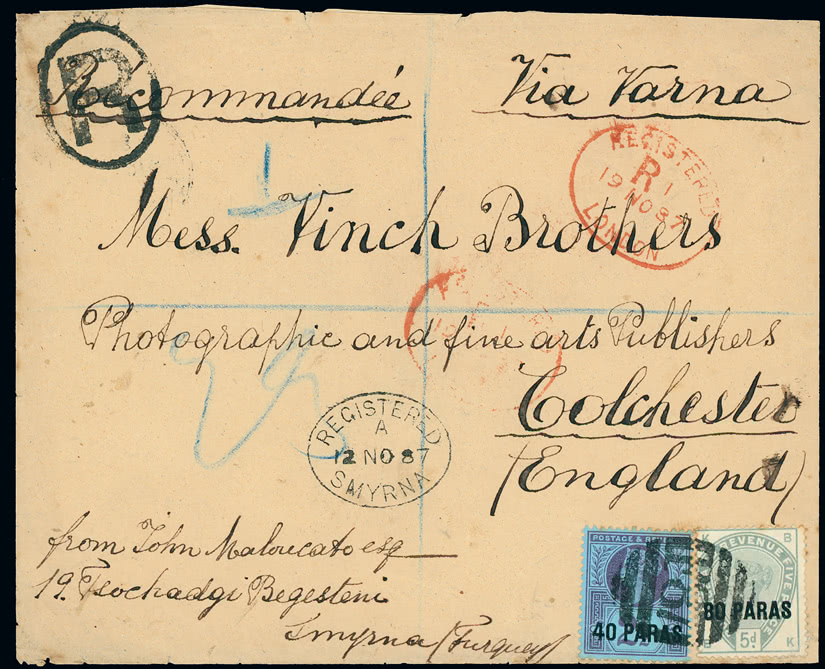 R
Recommandée Via Varna
REGISTERED
R 1
19 NO 87
LONDON
1
Mess. Vinch Brothers
Photographic and fine arts Publishers
Colchester
(England)
REGISTERED
A
12 NO 87
SMYRNA
from John Maloucato esq
19. Tsochadgi Begesteni
Smyrna (Turquey)
POSTAGE & REVENUE
40 PARAS
K B
REVENUE FIVE
80 PARAS
5d
K